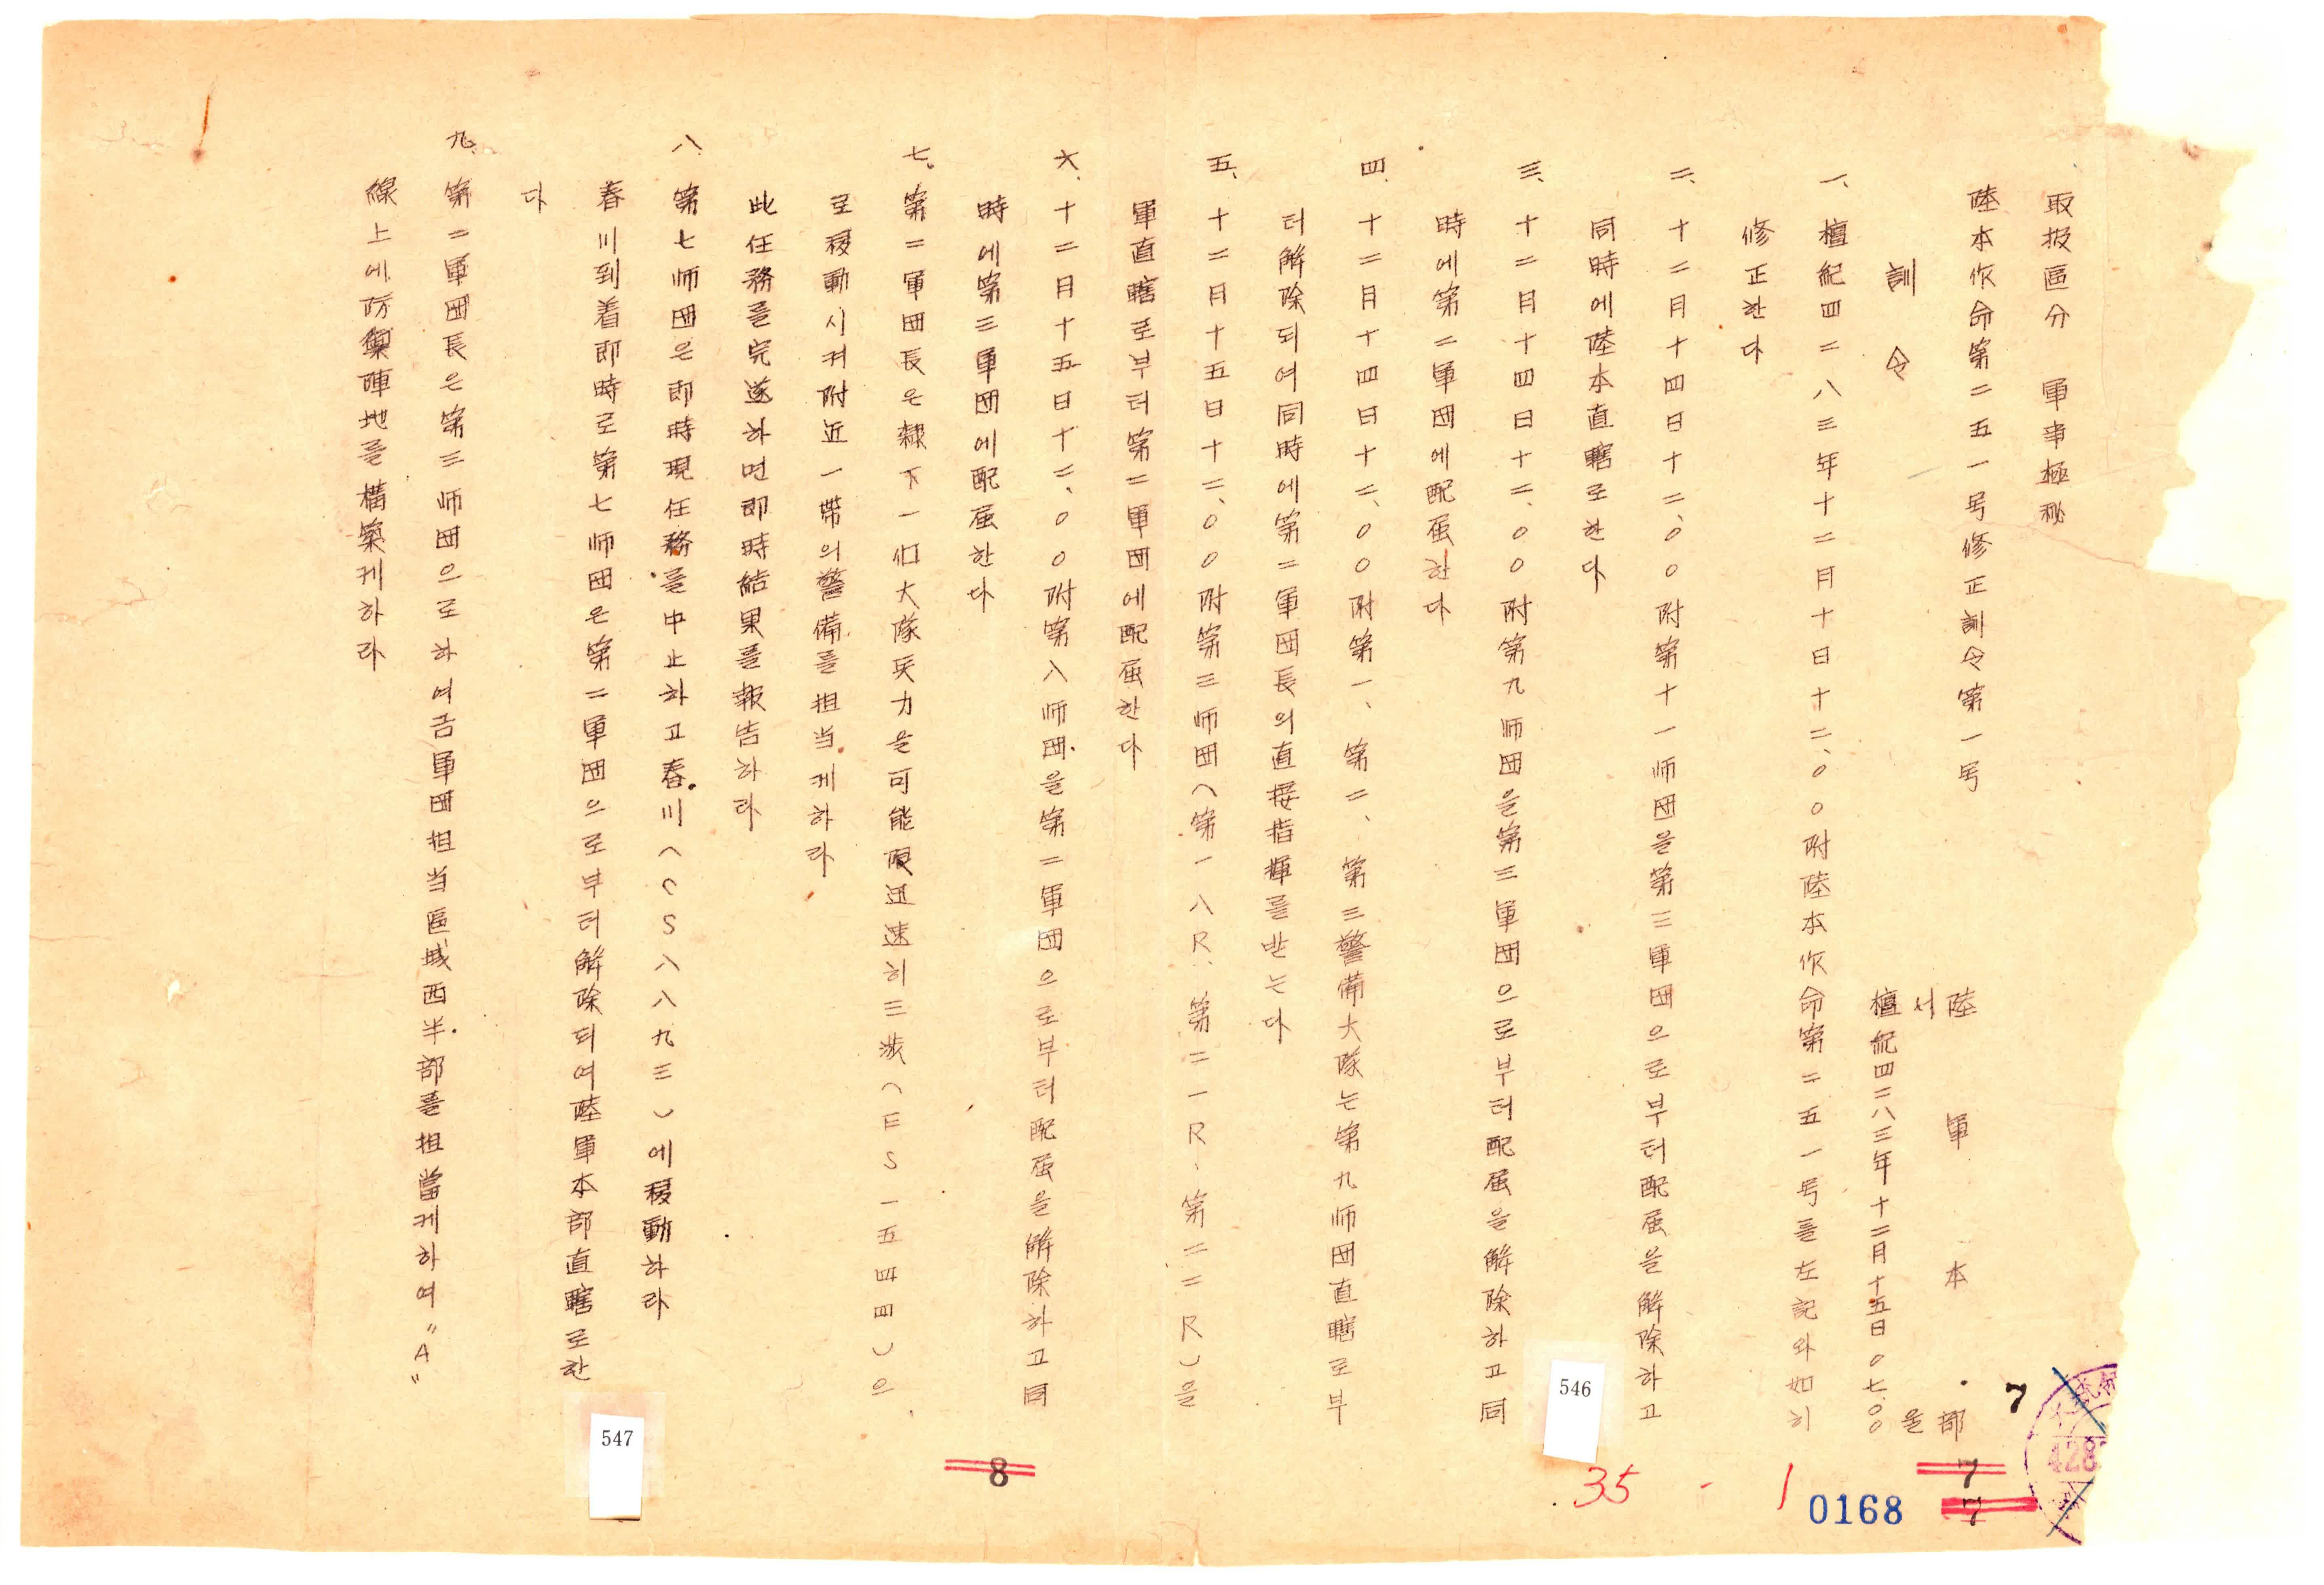 取扱區分　軍事極秘
陸本作命第二五一号修正訓令第一号
陸軍本部
서울
訓令
檀紀四二八三年十二月十五日０七.００
一、檀紀四二八三年十二月十日十二、００附陸本作命第二五一号를左記와如히
修正한다
二、十二月十四日十二、００附第十一师团을第三軍团으로부터配屈을解除하고
同時에陸本直轄로한다
三、十二月十四日十二、００附第九师团을第三軍团으로부터配屈을解除하고同
時에第二軍团에配屈한다
四、十二月十四日十二、００附第一、第二、第三警備大隊는第九师团直轄로부
터解除되여同時에第二軍团長의直接指揮를받는다
五、十二月十五日十二、００附第三师团(第一八R、第二一R、第二二R)을
軍直轄로부터第二軍团에配屈한다
六、十二月十五日十二、００附第八师团을第二軍团으로부터配屈을解除하고同
時에第三軍团에配屈한다
七。第二軍团長은隸下一個大隊兵力을可能限迅速히三陟(ES一五四四)으
로移動시켜附近一帶의警備를担当케하라
此任務를完遂하면即時結果를報告하라
八、第七师团은即時現任務를中止하고春川(CS八八九三)에移動하라
春川到着即時로第七师团은第二軍团으로부터解除되여陸軍本部直轄로한
다
九、第二軍团長은第三师团으로하여금軍团担当區域西半部를担當케하여"A"
線上에防禦陣地를構築케하라
546
547
7
7
7
8
35 - 1
0168
428